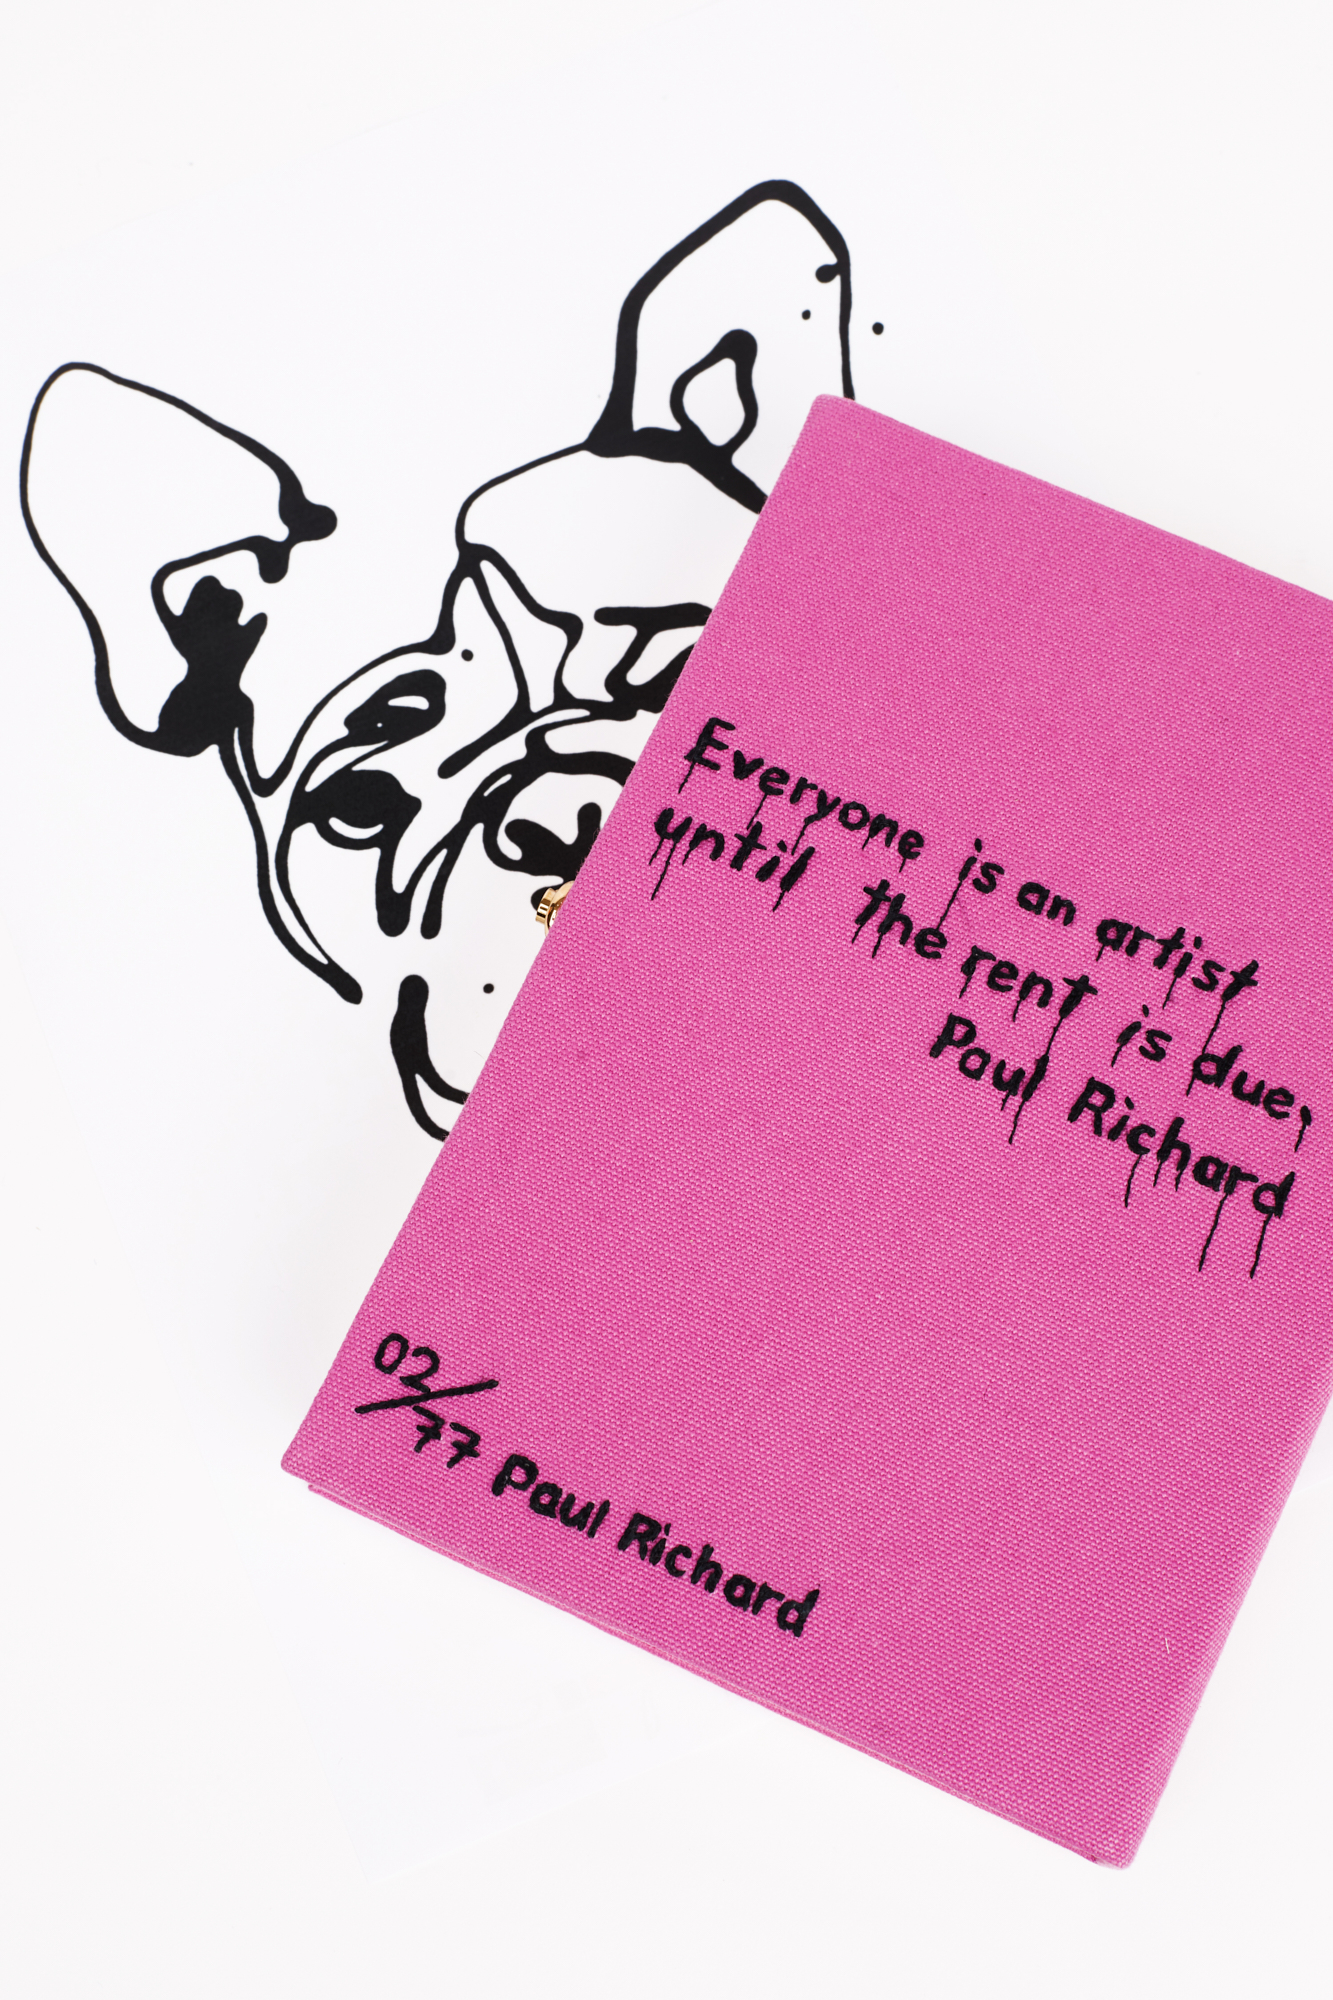 Everyone is an artist
until the rent is due,
Paul Richard
02/77 Paul Richard